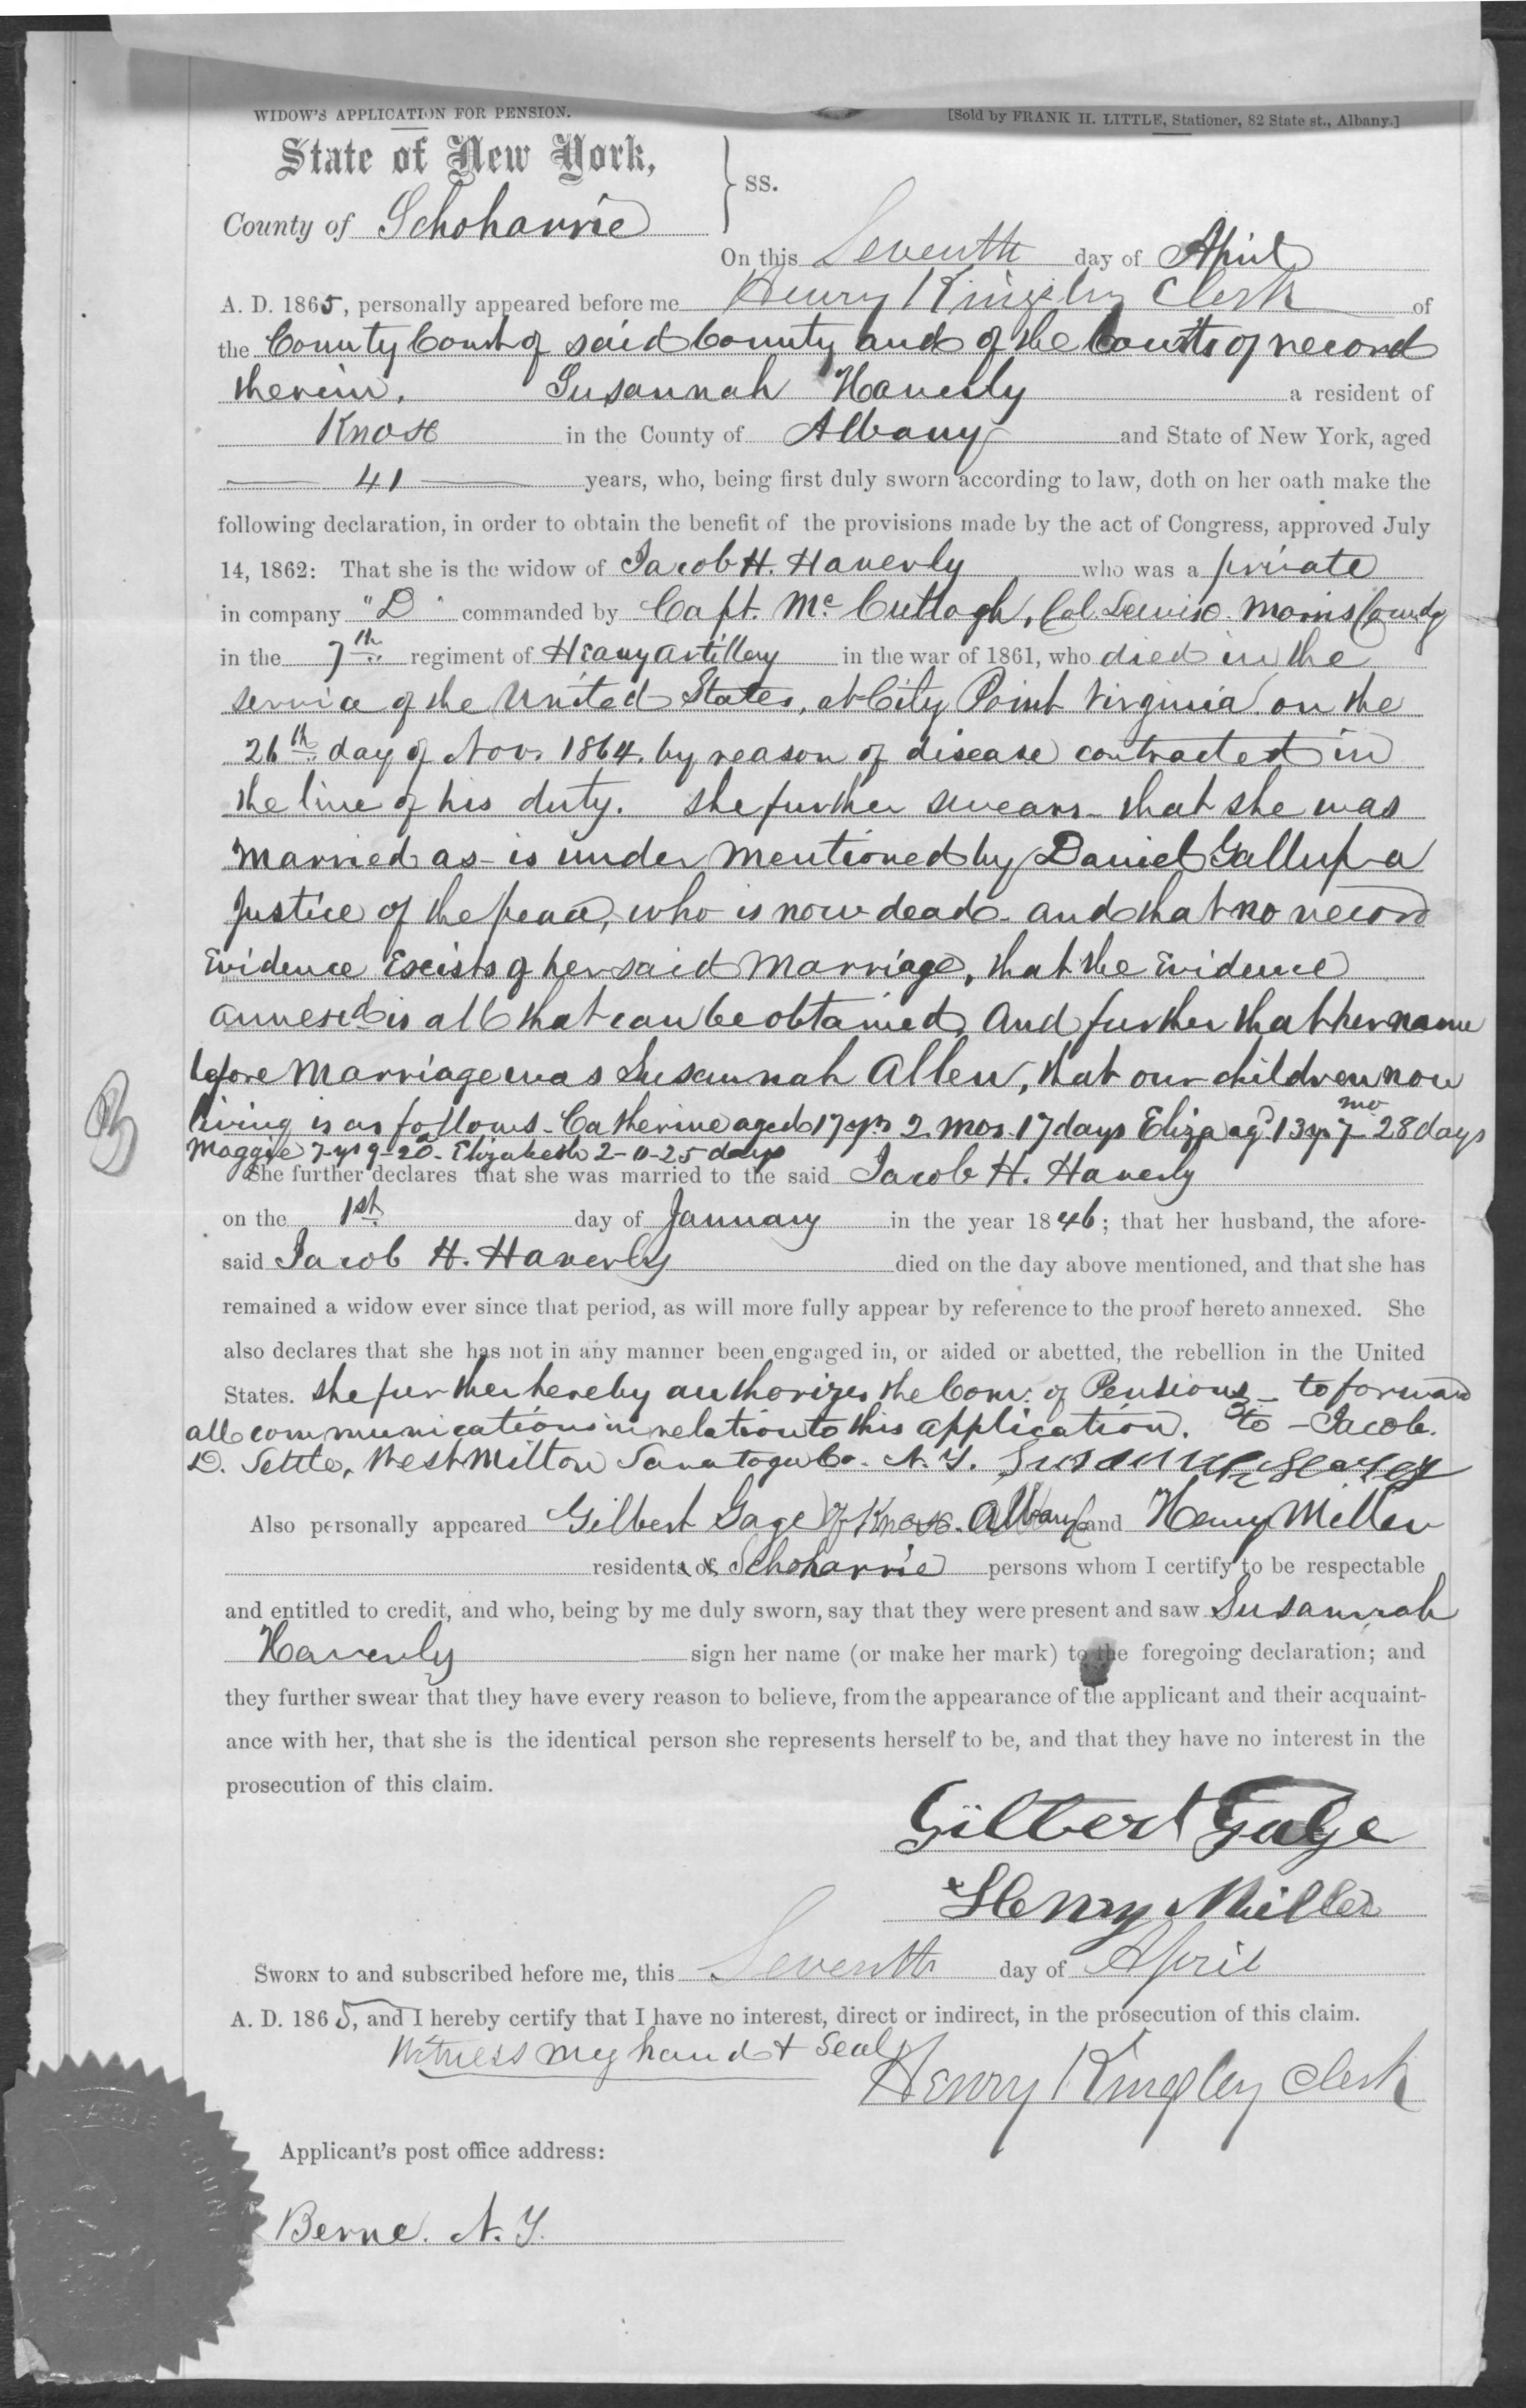 WIDOW'S APPLICATION FOR PENSION.
[Sold by FRANK H. LITTLE, Stationer, 82 State st., Albany.]
State of New York,
ss.
County of Schoharrie
On this Seventh day of April
A. D. 1865, personally appeared before me Henry Kingsley Clerk of
the County Court of said County and of the Courts of record
therein. Susannah Haverly a resident of
Knox in the County of Albany and State of New York, aged
41 years, who, being first duly sworn according to law, doth on her oath make the
following declaration, in order to obtain the benefit of the provisions made by the act of Congress, approved July
14, 1862: That she is the widow of Jacob H. Haverly who was a private
in company "D" commanded by Capt. McCullogh, Col. Lewis O. Morris Comdg
in the 7th regiment of Heavy Artillery in the war of 1861, who died in the
service of the United States, at City Point Virginia on the
26th day of Nov. 1864. by reason of disease contracted in
the line of his duty. she further swears that she was
married as is under mentioned by Daniel Gallup a
Justice of the peace, who is now dead. and that no record
Evidence Exists of her said Marriage, that the Evidence
annexed is all that can be obtained, And further that her name
before Marriage was Susannah Allen, that our children now
living is as follows - Catherine aged 17 yrs 2 mos. 17 days Eliza agd 13 yr 7 mo 28 days
Maggie 7 yrs 9 - 20. Elizabeth 2 - 0 - 25 days
She further declares that she was married to the said Jacob H. Haverly
on the 1st day of January in the year 1846; that her husband, the afore-
said Jacob H. Haverly died on the day above mentioned, and that she has
remained a widow ever since that period, as will more fully appear by reference to the proof hereto annexed. She
also declares that she has not in any manner been engaged in, or aided or abetted, the rebellion in the United
States. she further hereby authorizes the Com. of Pensions to forward
all communications in relation to this application. to - Jacob.
D. Settle, West Milton Saratoga Co. N. Y.
Also personally appeared Gilbert Gage of Knox. Albany and Henry Miller
residents of Schoharrie persons whom I certify to be respectable
and entitled to credit, and who, being by me duly sworn, say that they were present and saw Susannah
Haverly sign her name (or make her mark) to the foregoing declaration; and
they further swear that they have every reason to believe, from the appearance of the applicant and their acquaint-
ance with her, that she is the identical person she represents herself to be, and that they have no interest in the
prosecution of this claim.
Gilbert Gage
Henry Miller
SWORN to and subscribed before me, this Seventh day of April
A. D. 1865, and I hereby certify that I have no interest, direct or indirect, in the prosecution of this claim.
Witness my hand & Seal
Henry Kingsley Clerk
Applicant's post office address:
Berne. N. Y.